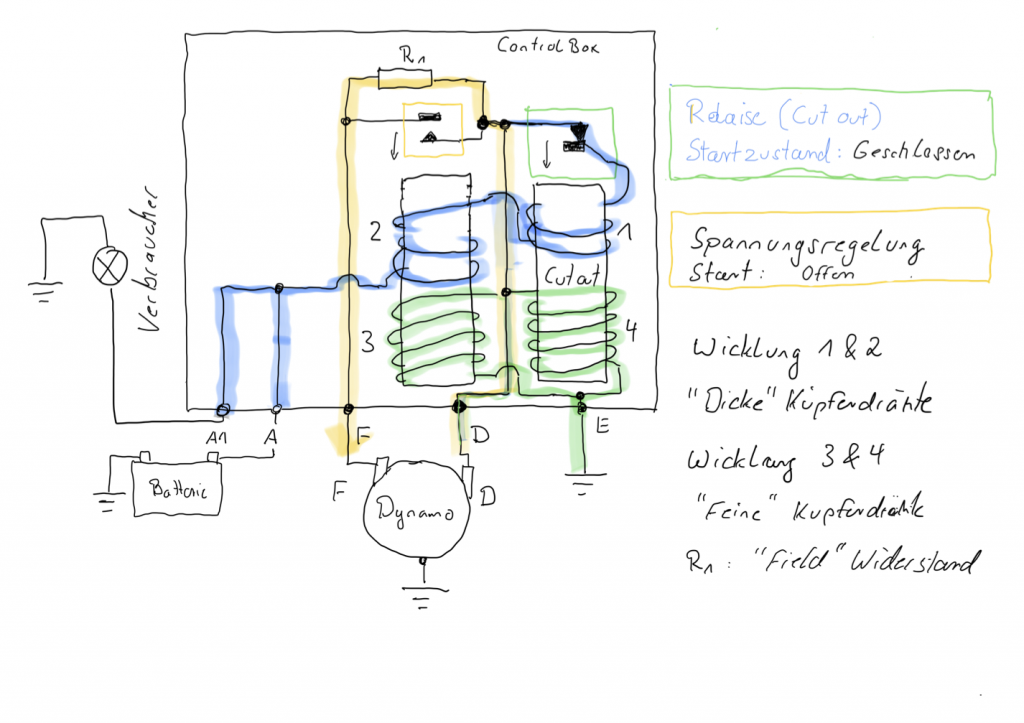 Control Box
R1
Relaise (Cut out)
Startzustand: Geschlossen
Verbraucher
2
1
Spannungsregelung
Start: Offen
Cut out
3
4
Wicklung 1 & 2
"Dicke" Kupferdrähte
A1
A
F
D
E
Wicklung 3 & 4
Batterie
F
D
"Feine" Kupferdrähte
Dynamo
R1: "Field" Widerstand